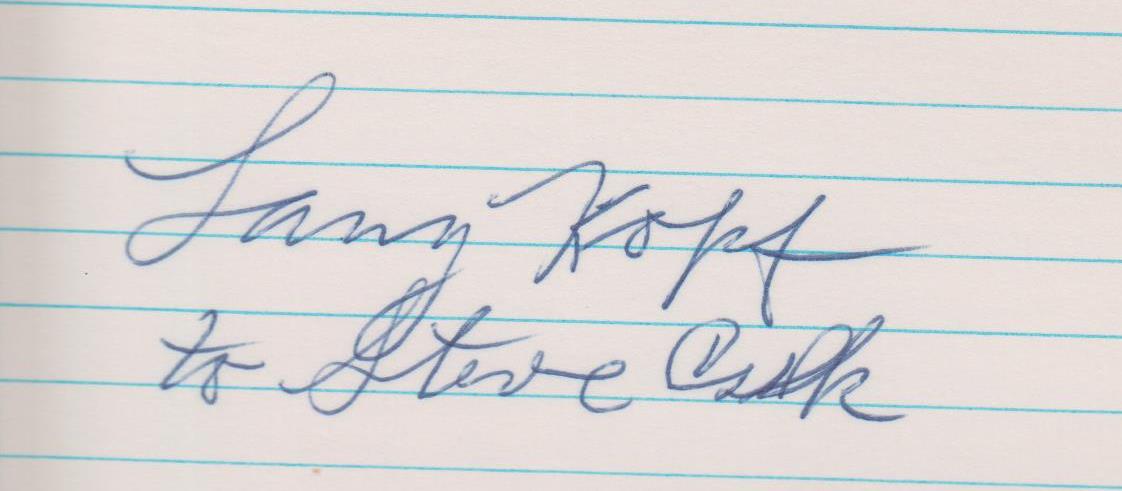 Larry Kopf
to Steve